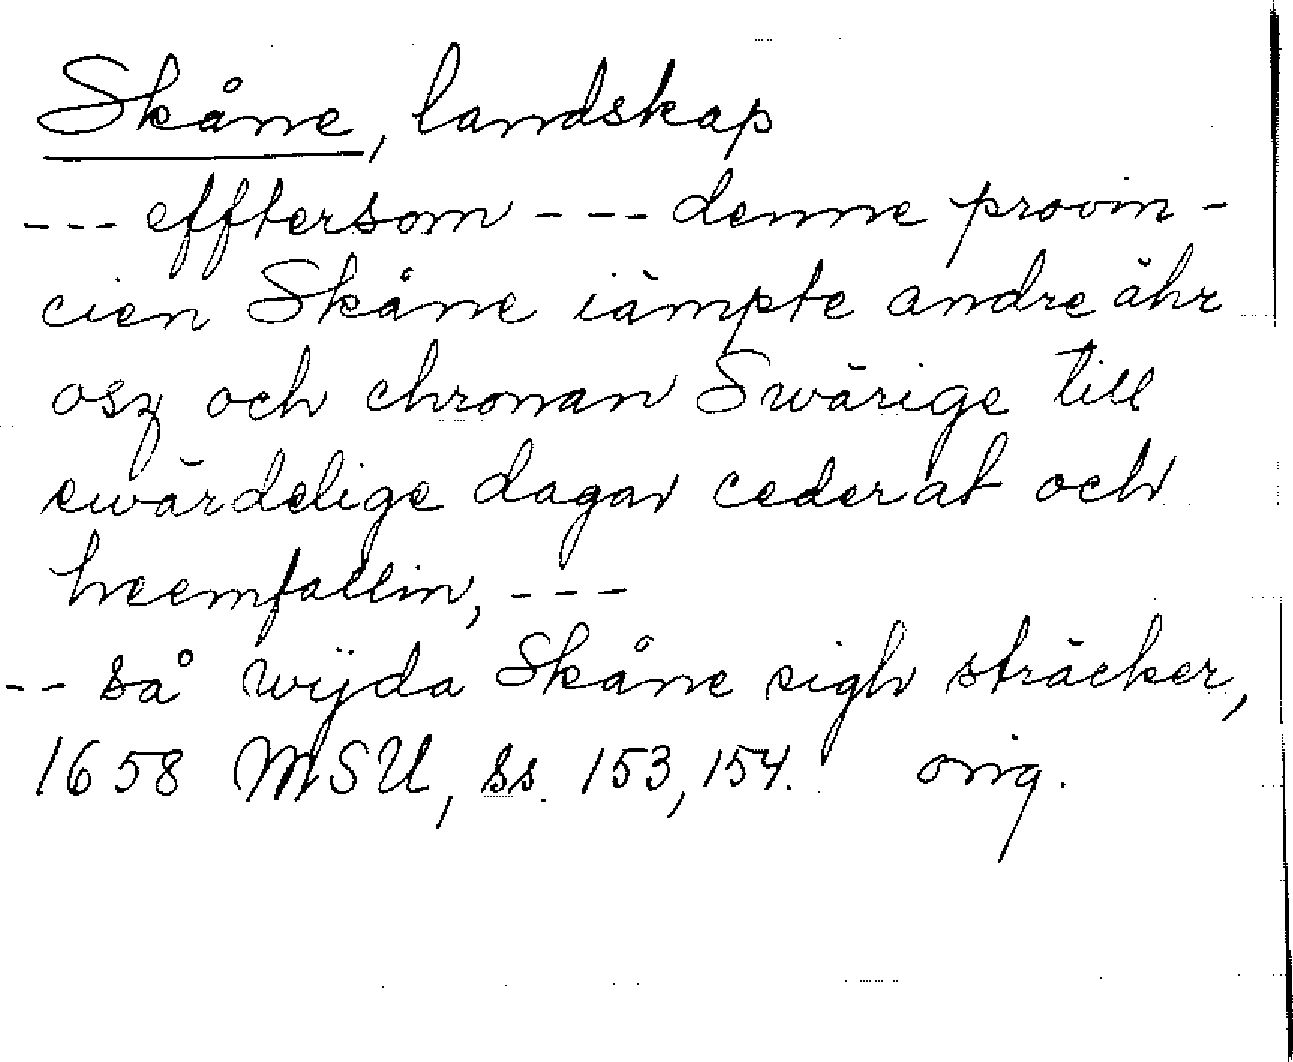 Skåne, landskap
--- efftersom --- denne provin-
cien Skåne iämpte andre ähr
osz och chronan Swärige till
ewärdelige dagar cederat och
heemfallin, ---
-- så wijda Skåne sigh sträcker,
1658 MSU, ss. 153, 154. orig.